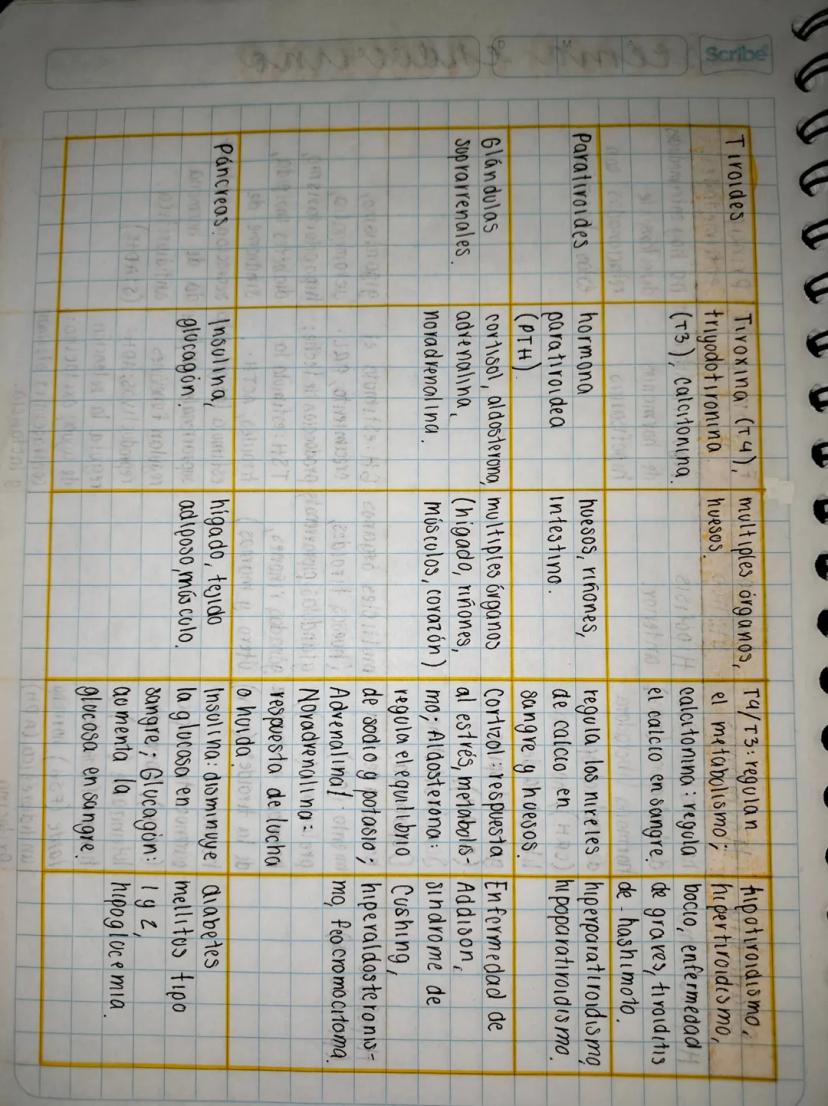 Scribe
Tiroides
Tiroxina (T4),
triyodotironina
(T3), calcitonina.
multiples órganos,
huesos.
T4/T3: regulan
el metabolismo;
calcitonina: regula
el calcio en sangre
hipotiroidismo,
hipertiroidismo,
bocio, enfermedad
de graves, tiroiditis
de hashimoto.
Paratiroides
hormona
paratiroidea
(PTH)
huesos, riñones,
intestino.
regula los niveles
de calcio en
sangre y huesos.
hiperparatiroidismo,
hipoparatiroidismo.
Glándulas
suprarrenales.
cortisol, aldosterona,
adrenalina,
noradrenalina.
multiples órganos
(hígado, riñones,
músculos, corazón)
Cortizol: respuesta
al estrés, metabolis-
mo; Aldosterona:
regula el equilibrio
de sodio y potasio;
Adrenalina/
Noradrenalina:
respuesta de lucha
o huida.
Enfermedad de
Addison,
síndrome de
Cushing,
hiperaldosteronis-
mo, feocromocitoma.
Páncreas.
Insulina,
glucagón.
hígado, tejido
adiposo, músculo.
Insulina: disminuye
la glucosa en
sangre; Glucagón:
aumenta la
glucosa en sangre.
diabetes
mellitus tipo
1 y 2,
hipoglucemia.